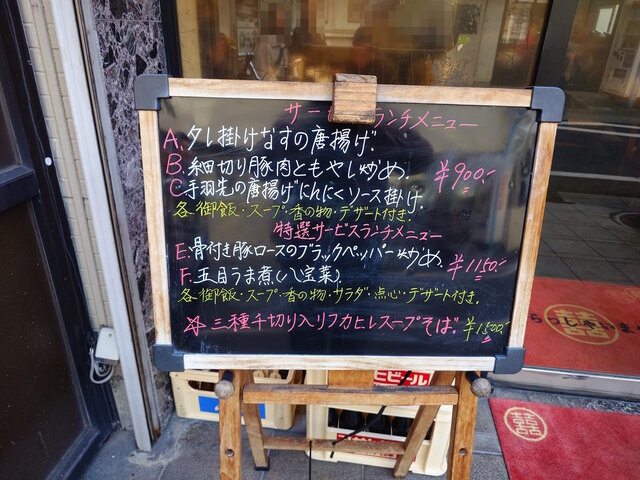 サービスランチメニュー
A. タレ掛けなすの唐揚げ.
B. 細切り豚肉ともやし炒め. ¥900.-
C 手羽先の唐揚げにんにくソース掛け
各御飯・スープ・香の物・デザート付き.
特選サービスランチメニュー
E. 骨付き豚ロースのブラックペッパー炒め. ¥1150.-
F. 五目うま煮(八宝菜)
各御飯・スープ・香の物・サラダ・点心・デザート付き.
☆ 三種千切り入りフカヒレスープそば. ¥1,500.-
ビール
囍
囍